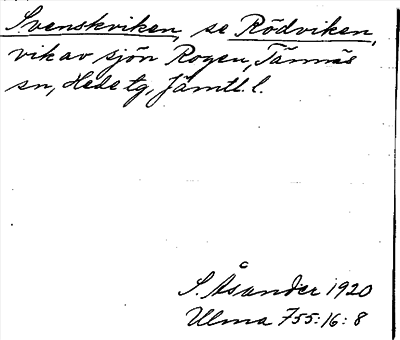 Svenskviken, se Rödviken,
vik av sjön Rogen, Tännäs
sn, Hede tg, Jämtl. l.
S. Åsander 1920
Ulma 755:16:8